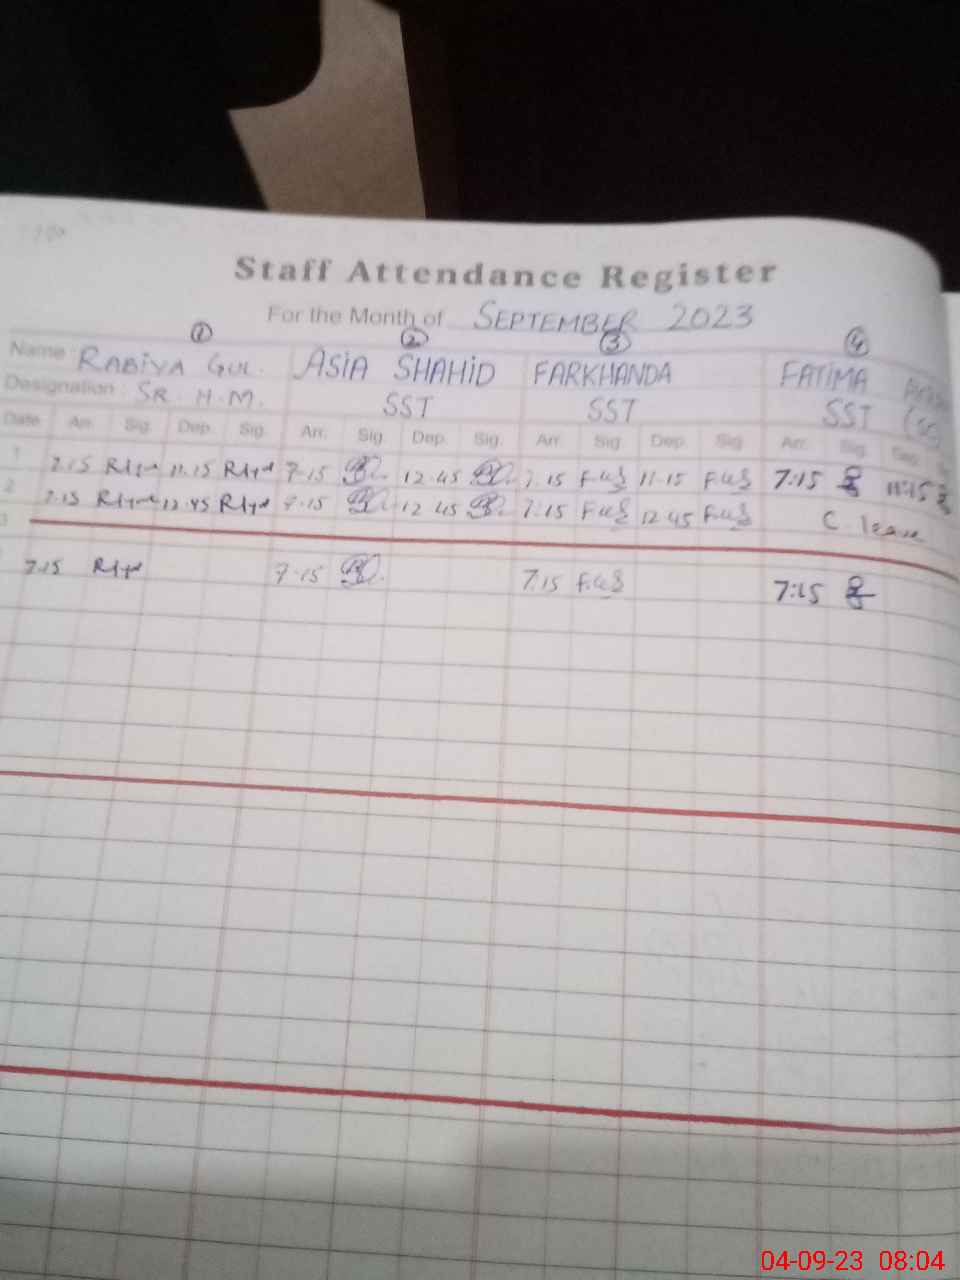 Staff Attendance Register
For the Month of SEPTEMBER 2023
1 2 3 4
Name RABIYA GUL. ASIA SHAHID FARKHANDA FATIMA
Designation SR. H.M. SST SST SST
Date Arr. Sig. Dep. Sig. Arr. Sig. Dep. Sig. Arr. Sig. Dep. Sig. Arr. Sig. Dep.
1 7.15 11.15 7-15 12.45 7.15 11-15 7:15 11:15
2 7.15 12.45 7.15 12 45 7:15 12 45 C. leave
3
7.15 7.15 7.15 7:15
04-09-23 08:04